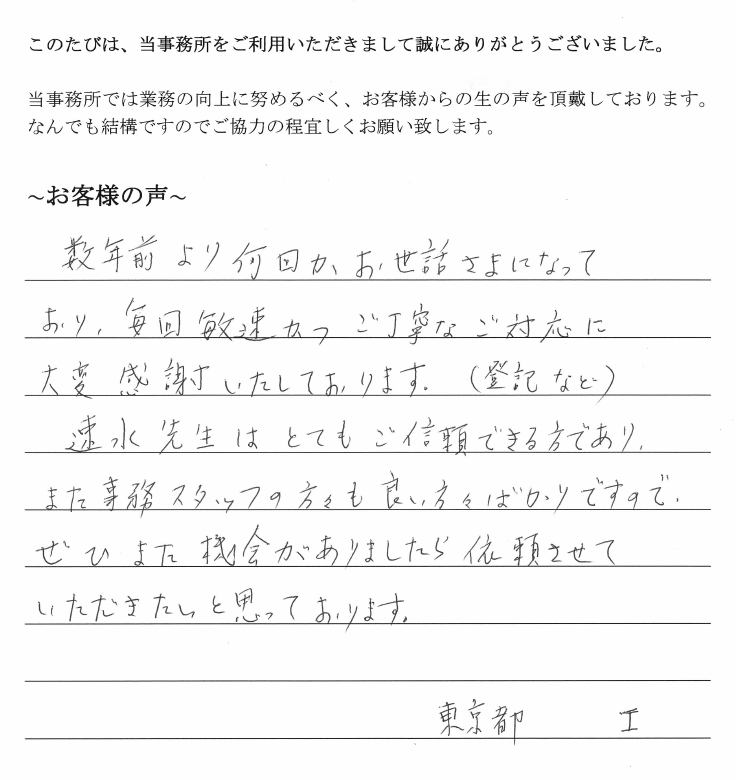 このたびは、当事務所をご利用いただきまして誠にありがとうございました。
当事務所では業務の向上に努めるべく、お客様からの生の声を頂戴しております。
なんでも結構ですのでご協力の程宜しくお願い致します。
~お客様の声~
数年前より何回か、お世話さまになって
おり、毎回敏速かつご丁寧なご対応に
大変感謝いたしております。(登記など)
速水先生はとてもご信頼できる方であり、
また事務スタッフの方々も良い方々ばかりですので、
ぜひまた機会がありましたら依頼させて
いただきたいと思っております。
東京都 I